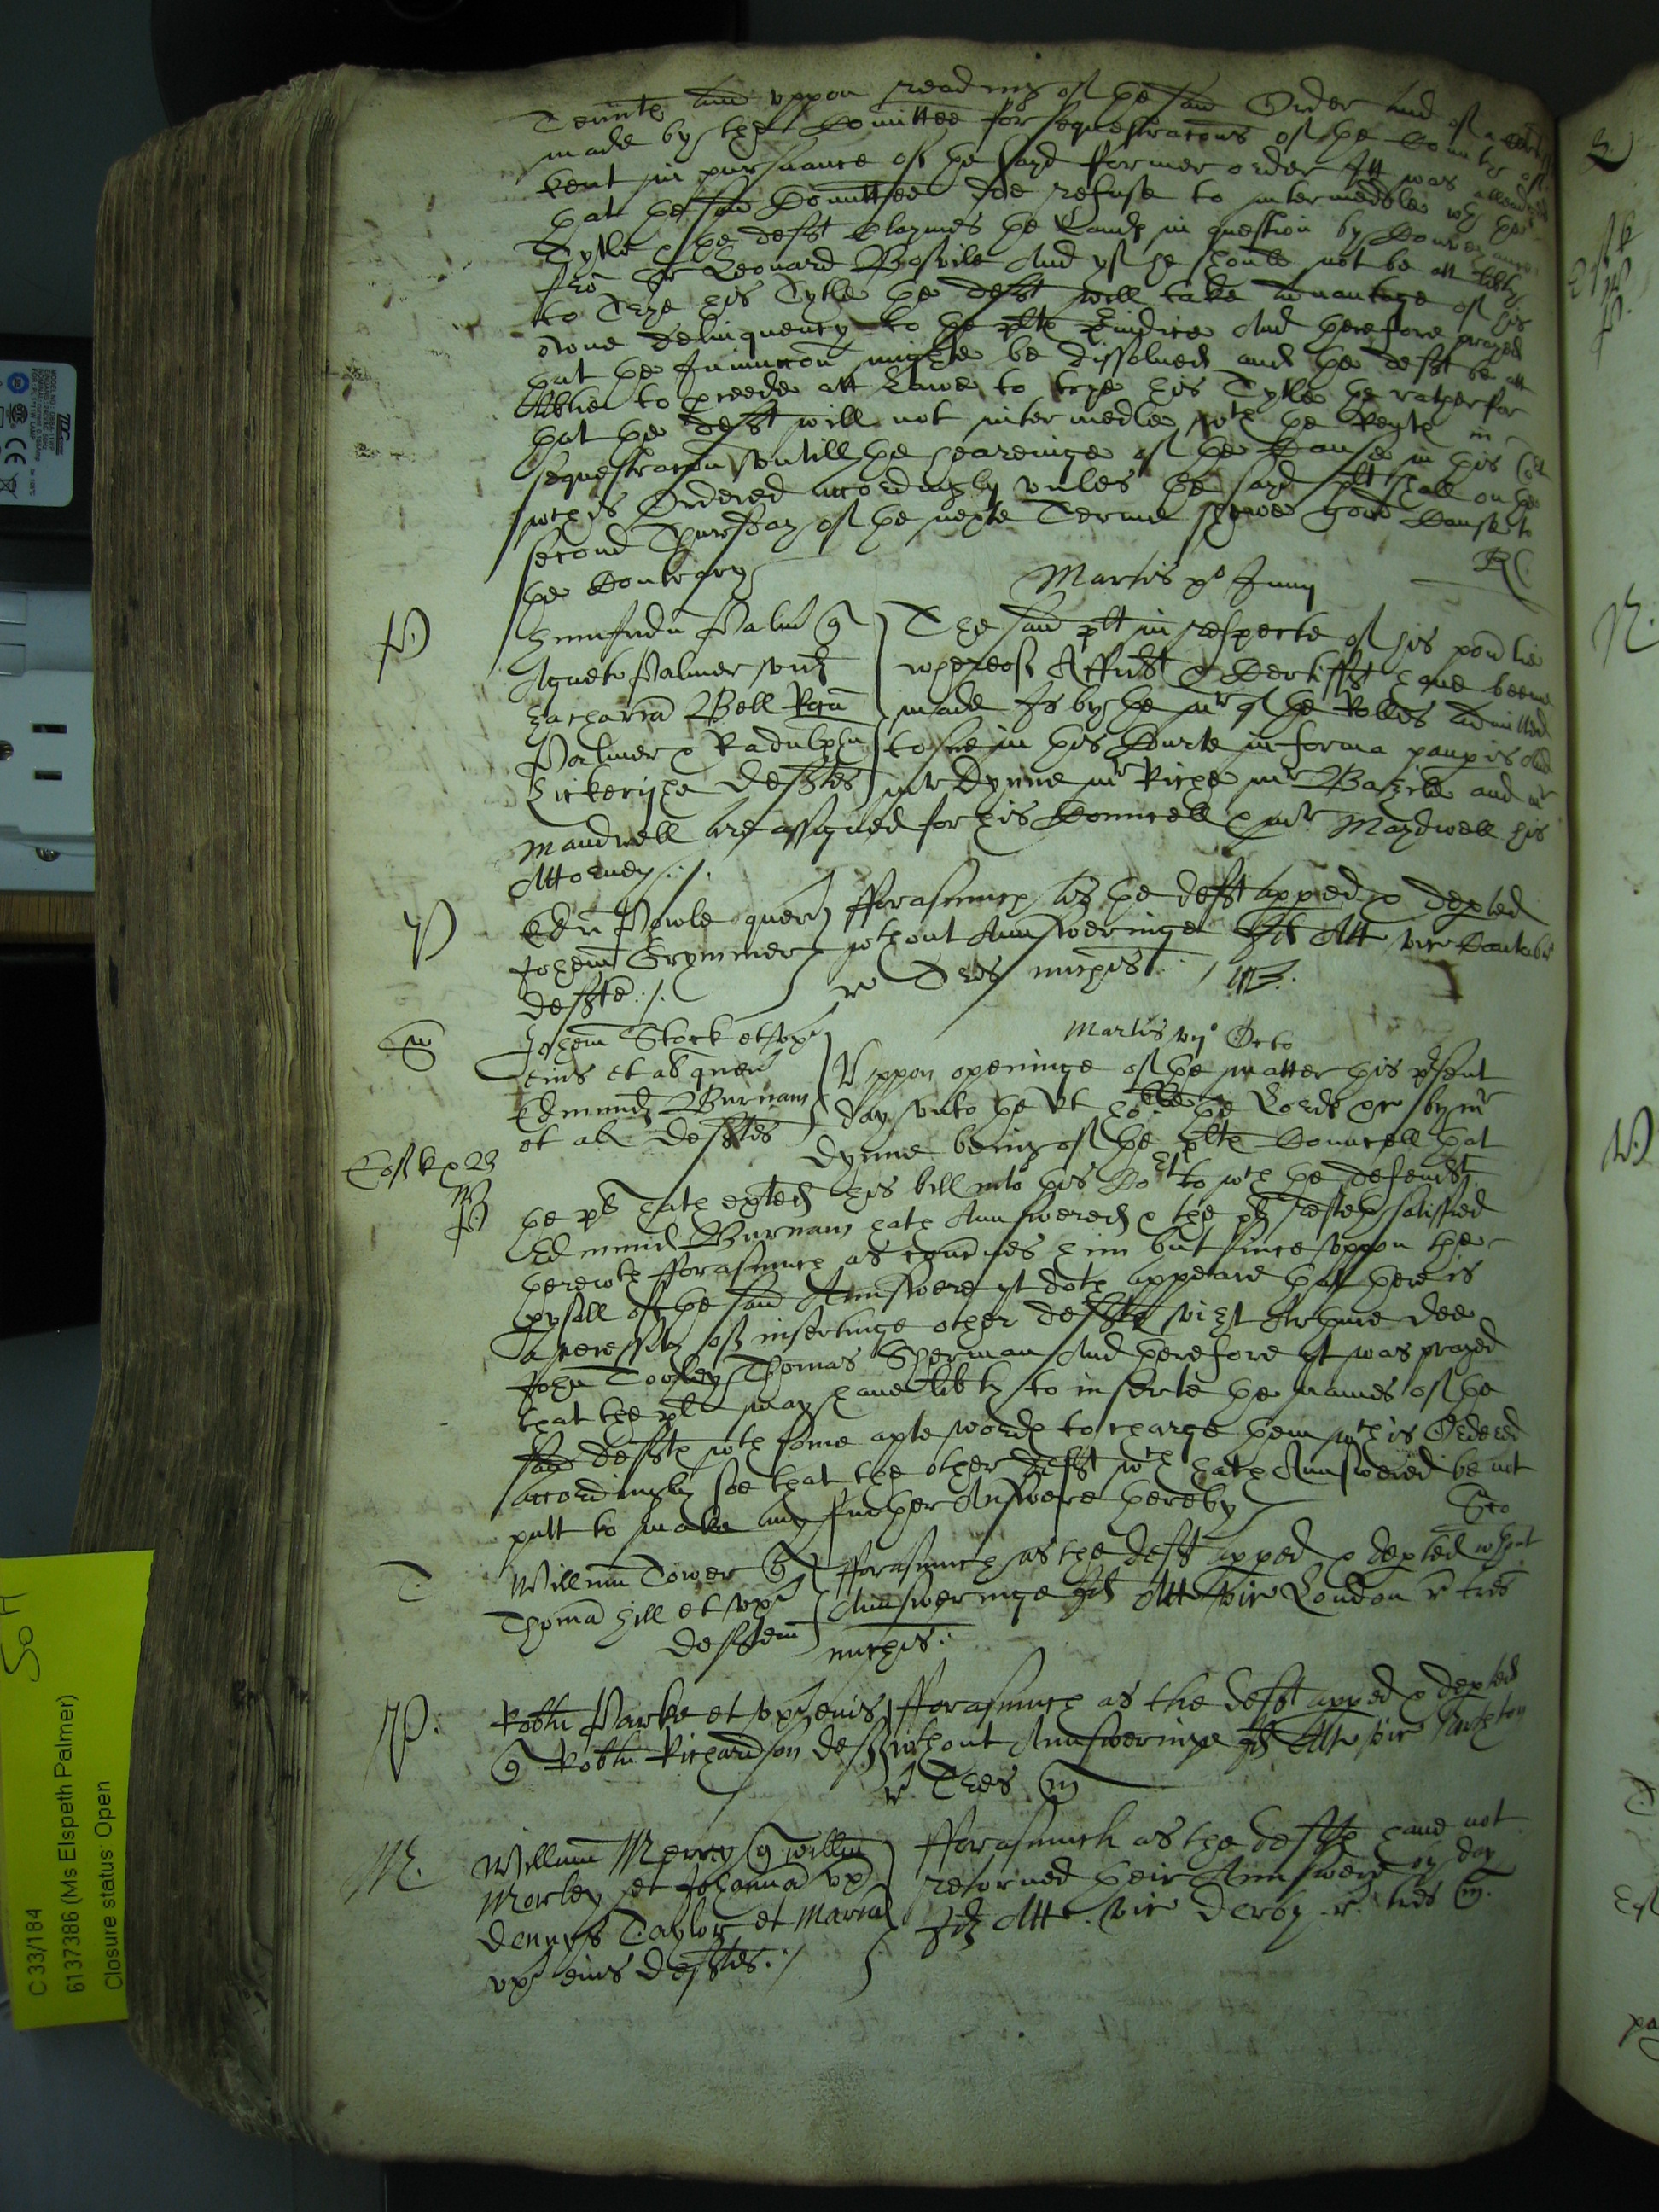 Tennte And vppon reading of the said Order And of a Certi
made by the Comittee for sequestracons of the County of
Kent in pursuance of the sayd former order Itt was alleadged
that the said Comittee doe refuse to intermedle wth the
Tytle the deft claymes the Lands in question by Conveyance
fro Sr Leonard Bosvile And yf he should not be att libty
to Trye his Tytle the deft will take advantage of his
owne delinquency to the plts preiudice And therefore prayed
that the Iniunccon might be dissolued and the deft be att
libtie to proceede att Lawe to trye his Tytle the rather for
that the deft will not intermedle wth the Rents in
sequestracon vntill the heareinge of the Cause in this Cort
wch is Ordered accordingly vnles the sayd plt shall on the
second Thursday of the nexte Terme shewe good Cause to
the Contrary
RC
Martis po Junij
P
Humfridu Palmer
Agneta Palmer vid
Zacharia Bell Rogu
Palmer & Radulphu
Hickeringe deftes
The said plt in respecte of his pouertie
whereof Affidt & Certifft haue beene
made Is by the mr of the Rolles Admitted
to sue in this Courte in forma paupis And
mr Dynne mr Riche mr Bazile and mr
Maudwell are assigned for his Councell & mr Maydwell his
Attorney ./.
P
Edru Powle quer
Johem Grymmer
defte ./.
fforasmuch as the deft apped & depted
wthout Aunsweringe Id Att vic Cantabr
r Tres michis
S
Martis Octo
Johem Stork et vx
eius et al quer
Edmund Burnam
et al defftes
Vppon openinge of the matter this psent
day vnto the Rt hoble the Lords &c by mr
Dynne being of the plts Councell that
the plt hath exhted his bill into this Cort to wch the defendt
Edmund Burnam hath Aunswered & the plt resteth satisfied
therewth fforasmuch as concnes him but since vppon the
pvsall of the said Aunswere yt doth appeare that there is
a necessity of insertinge other deffts vizt Arthure Dee
John Towley Thomas Sherman And therefore yt was prayed
that the plt may haue libty to inserte the names of the
said deffts wth some apte words to charge them wch is Ordered
accordingly soe that the other deft wch hath Aunswered be not
putt to make any further Answere hereby
T
Willmu Tower
Thoma Hill et vx
deffdem
fforasmuch as the deft apped & depted wthout
Aunsweringe Id Att vic London r tres
michis
P
Robtu Parke et vx eius
Robtu Richardson deff
fforasmuch as the deft apped & depted
wthout Aunsweringe Id Att vic
r Tres m
M
Willmu Merry Willm
Morley et Johanna vx
Dennys Taylor et Maria
vx eius deftes ./
fforasmuch as the deffts haue not
retorned their Aunswere by day
Id Att vic Derby r tres m
C 33/184
6137386 (Ms Elspeth Palmer)
Closure status: Open